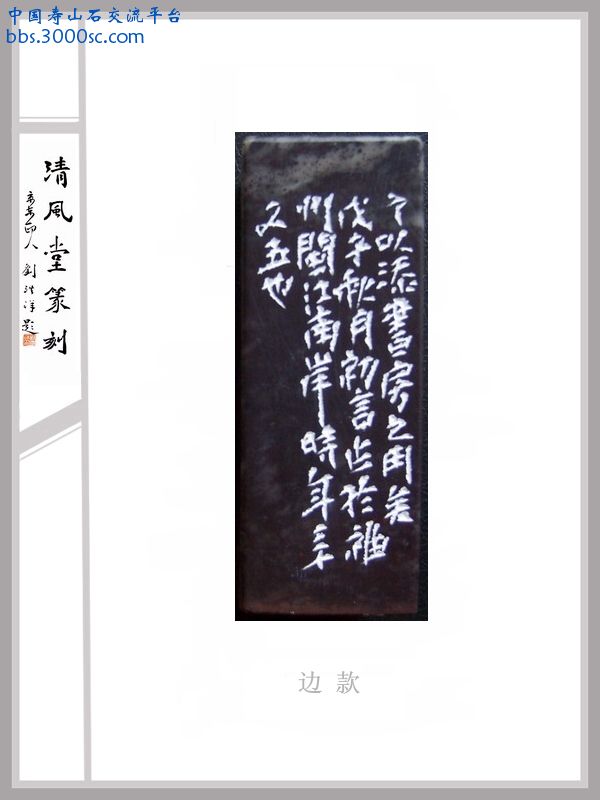 中国寿山石交流平台
bbs.3000sc.com
清風堂篆刻
印人劉洪洋題
以添書房之用矣
戊子秋月初言作於福
州閩江南岸時年三十
又五也
边款